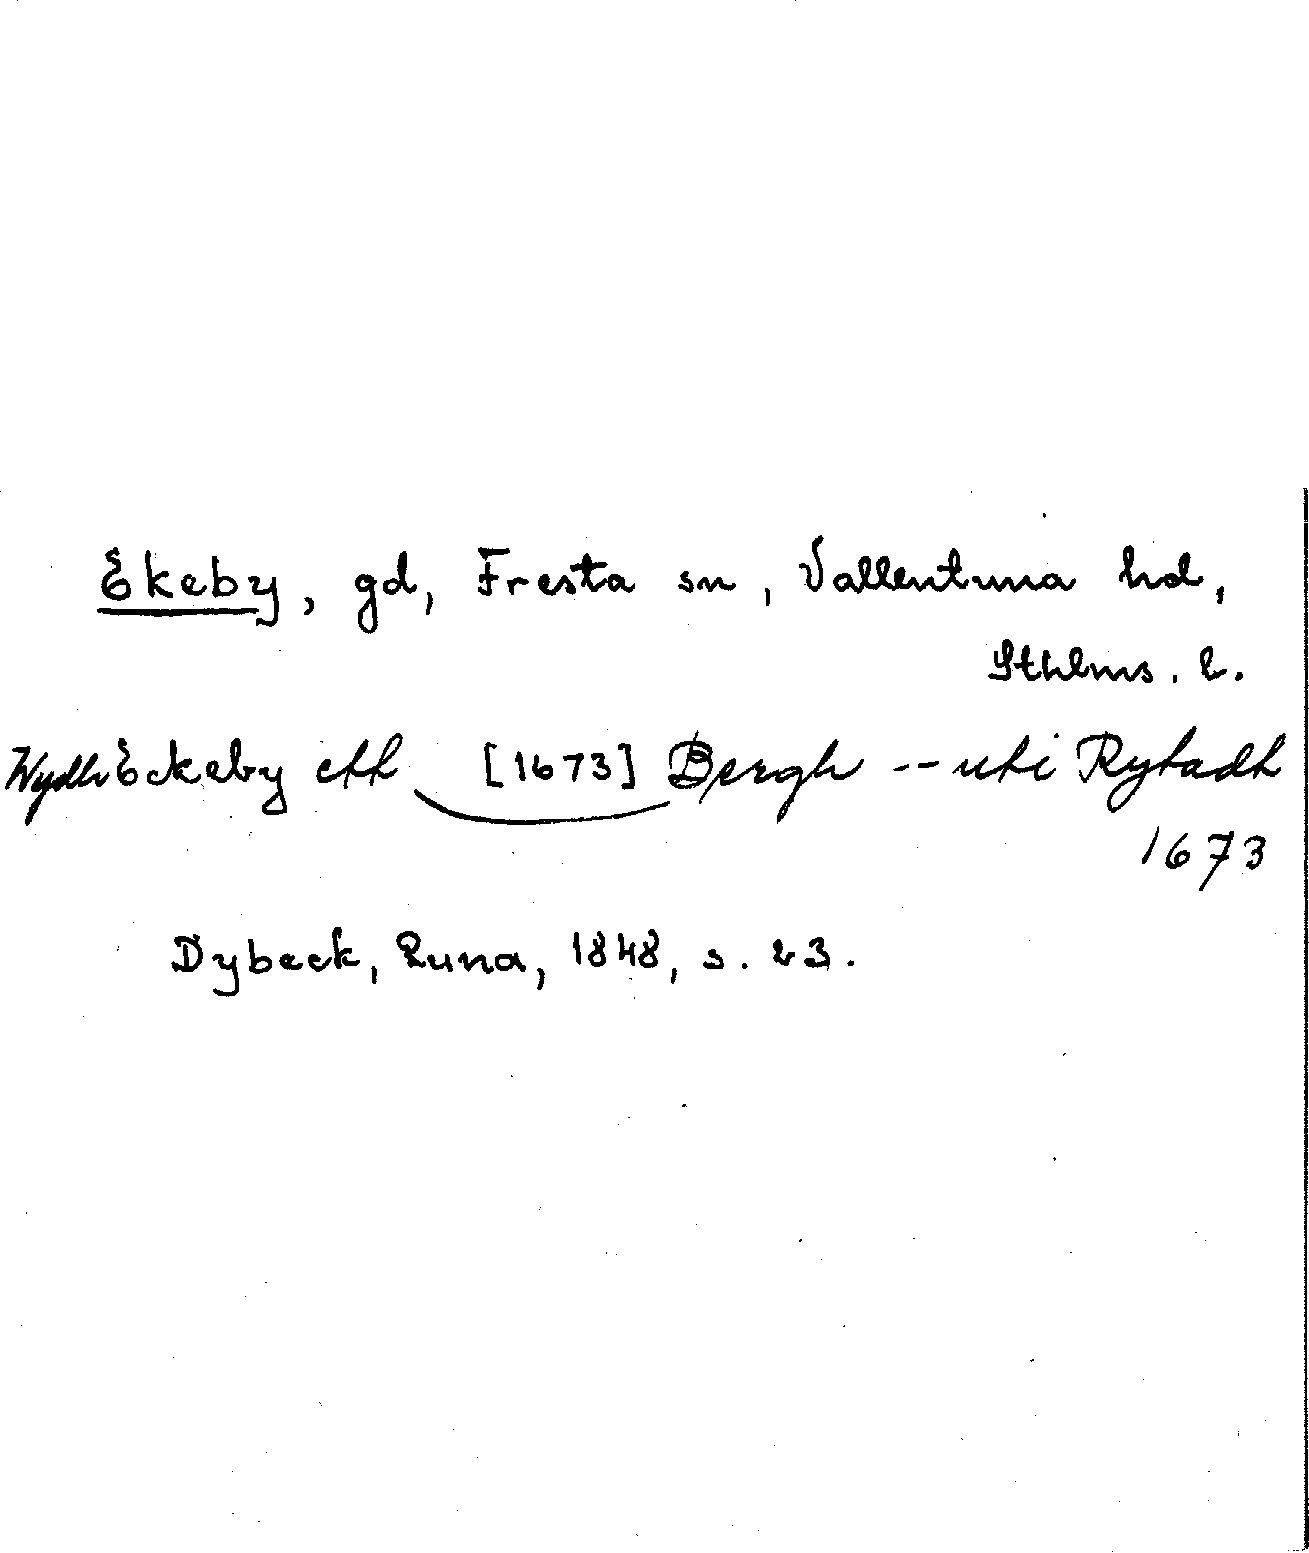 Ekeby, gd, Fresta sn, Vallentuna hd,
Sthlms. l.
Wydh Eckeby ett [1673] Bergh -- uti Rytadh
1673
Dybeck, Runa, 1848, s. 23.